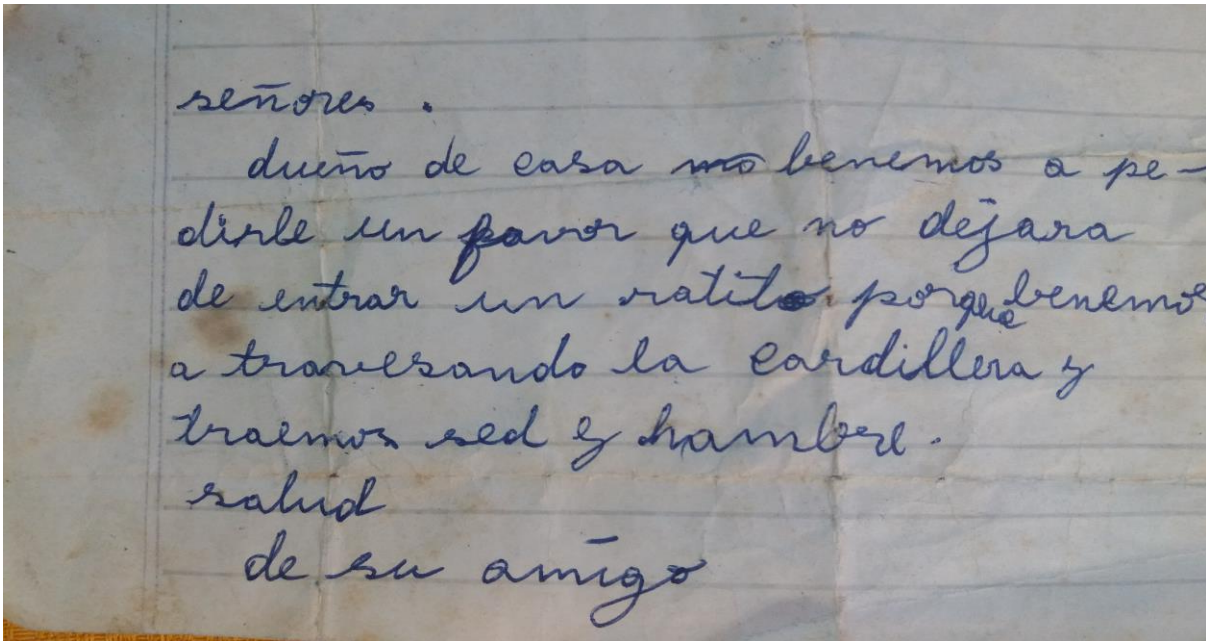 señores.
dueño de casa no benemos a pe-
dirle un favor que no dejara
de entrar un ratito. porque benemos
a travesando la cardillera y
traemos sed y hambre.
salud
de su amigo